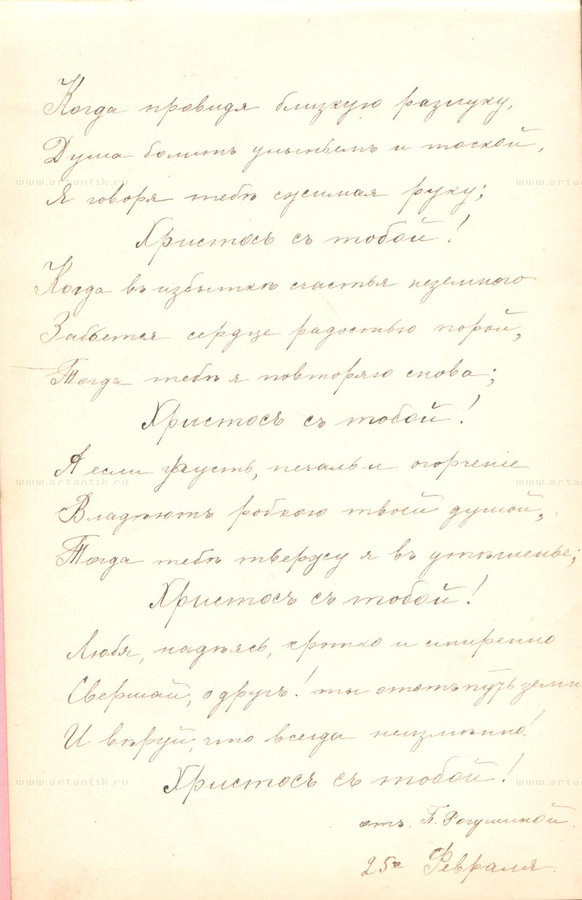 Когда провидя близкую разлуку,
Душа болитъ уныньемъ и тоской,
Я говоря тебѣ сжимая руку;
Христосъ съ тобой!
Когда въ избыткѣ счастья неземного
Забьется сердце радостью порой,
Тогда тебѣ я повторяю снова;
Христосъ съ тобой!
А если грусть, печаль и огорченіе
Владѣютъ робкою твоей душой,
Тогда тебѣ твержу я въ утѣшенье;
Христосъ съ тобой!
Любя, надѣясь, кротко и смиренно
Свершай, о другъ! ты этотъ путь земн
И вѣруй, что всегда неизмѣнно!
Христосъ съ тобой!
отъ
25го Февраля.
www.artantik.ru